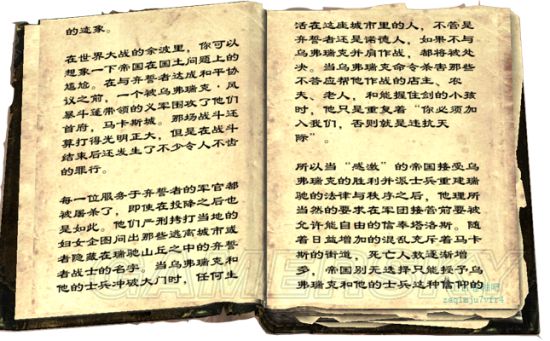 的迹象。
在世界大战的余波里，你可以
想象一下帝国在国土问题上的
尴尬。在与弃誓者达成和平协
议之前，一个被乌弗瑞克·风
暴斗篷带领的义军围攻了他们
首府，马卡斯城。那场战斗还
算打得光明正大，但是在战斗
结束后还发生了不少令人不齿
的罪行。
每一位服务于弃誓者的军官都
被屠杀了，即使在投降之后也
是如此。他们严刑拷打当地的
妇女企图问出那些逃离城市或
者隐藏在瑞驰山丘之中的弃誓
者战士的名字。当乌弗瑞克和
他的士兵冲破大门时，任何生
活在这座城市里的人，不管是
弃誓者还是诺德人，如果不与
乌弗瑞克并肩作战，都将被处
决。当乌弗瑞克命令杀害那些
不答应帮他作战的店主、农
夫、老人，和能握住剑的小孩
时，他只是重复着“你必须加
入我们，否则就是违抗天
际”。
所以当“感激”的帝国接受乌
弗瑞克的胜利并派士兵重建瑞
驰的法律与秩序之后，他理所
当然的要求在军团接管前要被
允许能自由的信奉塔洛斯。随
着日益增加的混乱充斥着马卡
斯的街道，死亡人数逐渐增
多，帝国别无选择只能授予乌
弗瑞克和他的士兵这种信仰的
GAMERSKY
zaqimju7vfr4